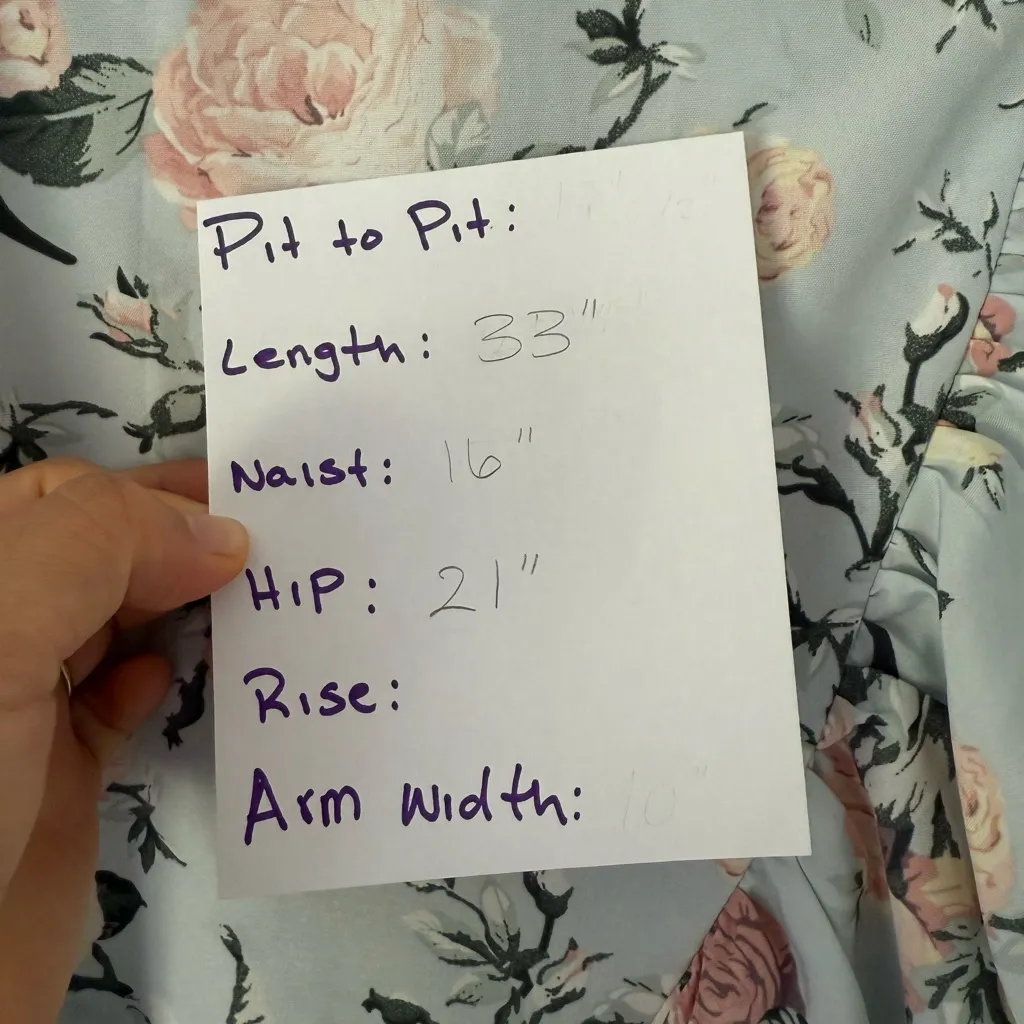 Pit to Pit:
Length: 33"
Waist: 16"
Hip: 21"
Rise:
Arm Width: